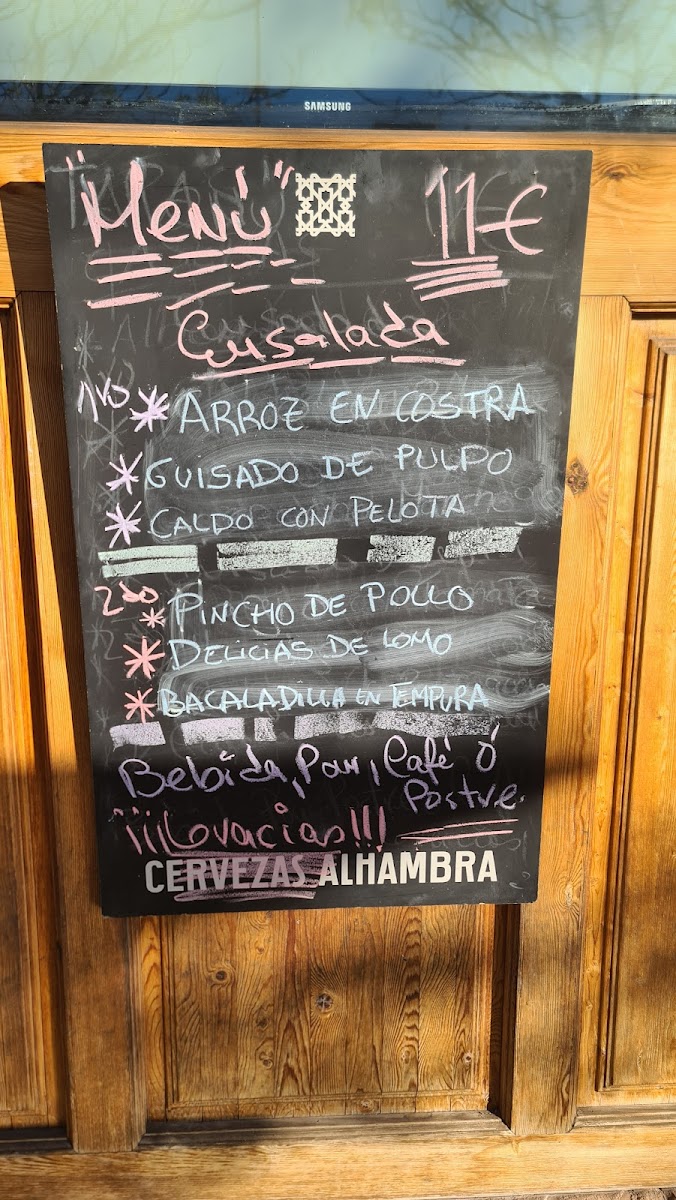 SAMSUNG
"Menú" 11€
Ensalada
1ro * ARROZ EN COSTRA
* GUISADO DE PULPO
* CALDO CON PELOTA
2do * PINCHO DE POLLO
* DELICIAS DE LOMO
* BACALADILLA EN TEMPURA
Bebida, Pan, Café ó
Postre.
¡¡¡Gracias!!!
CERVEZAS ALHAMBRA